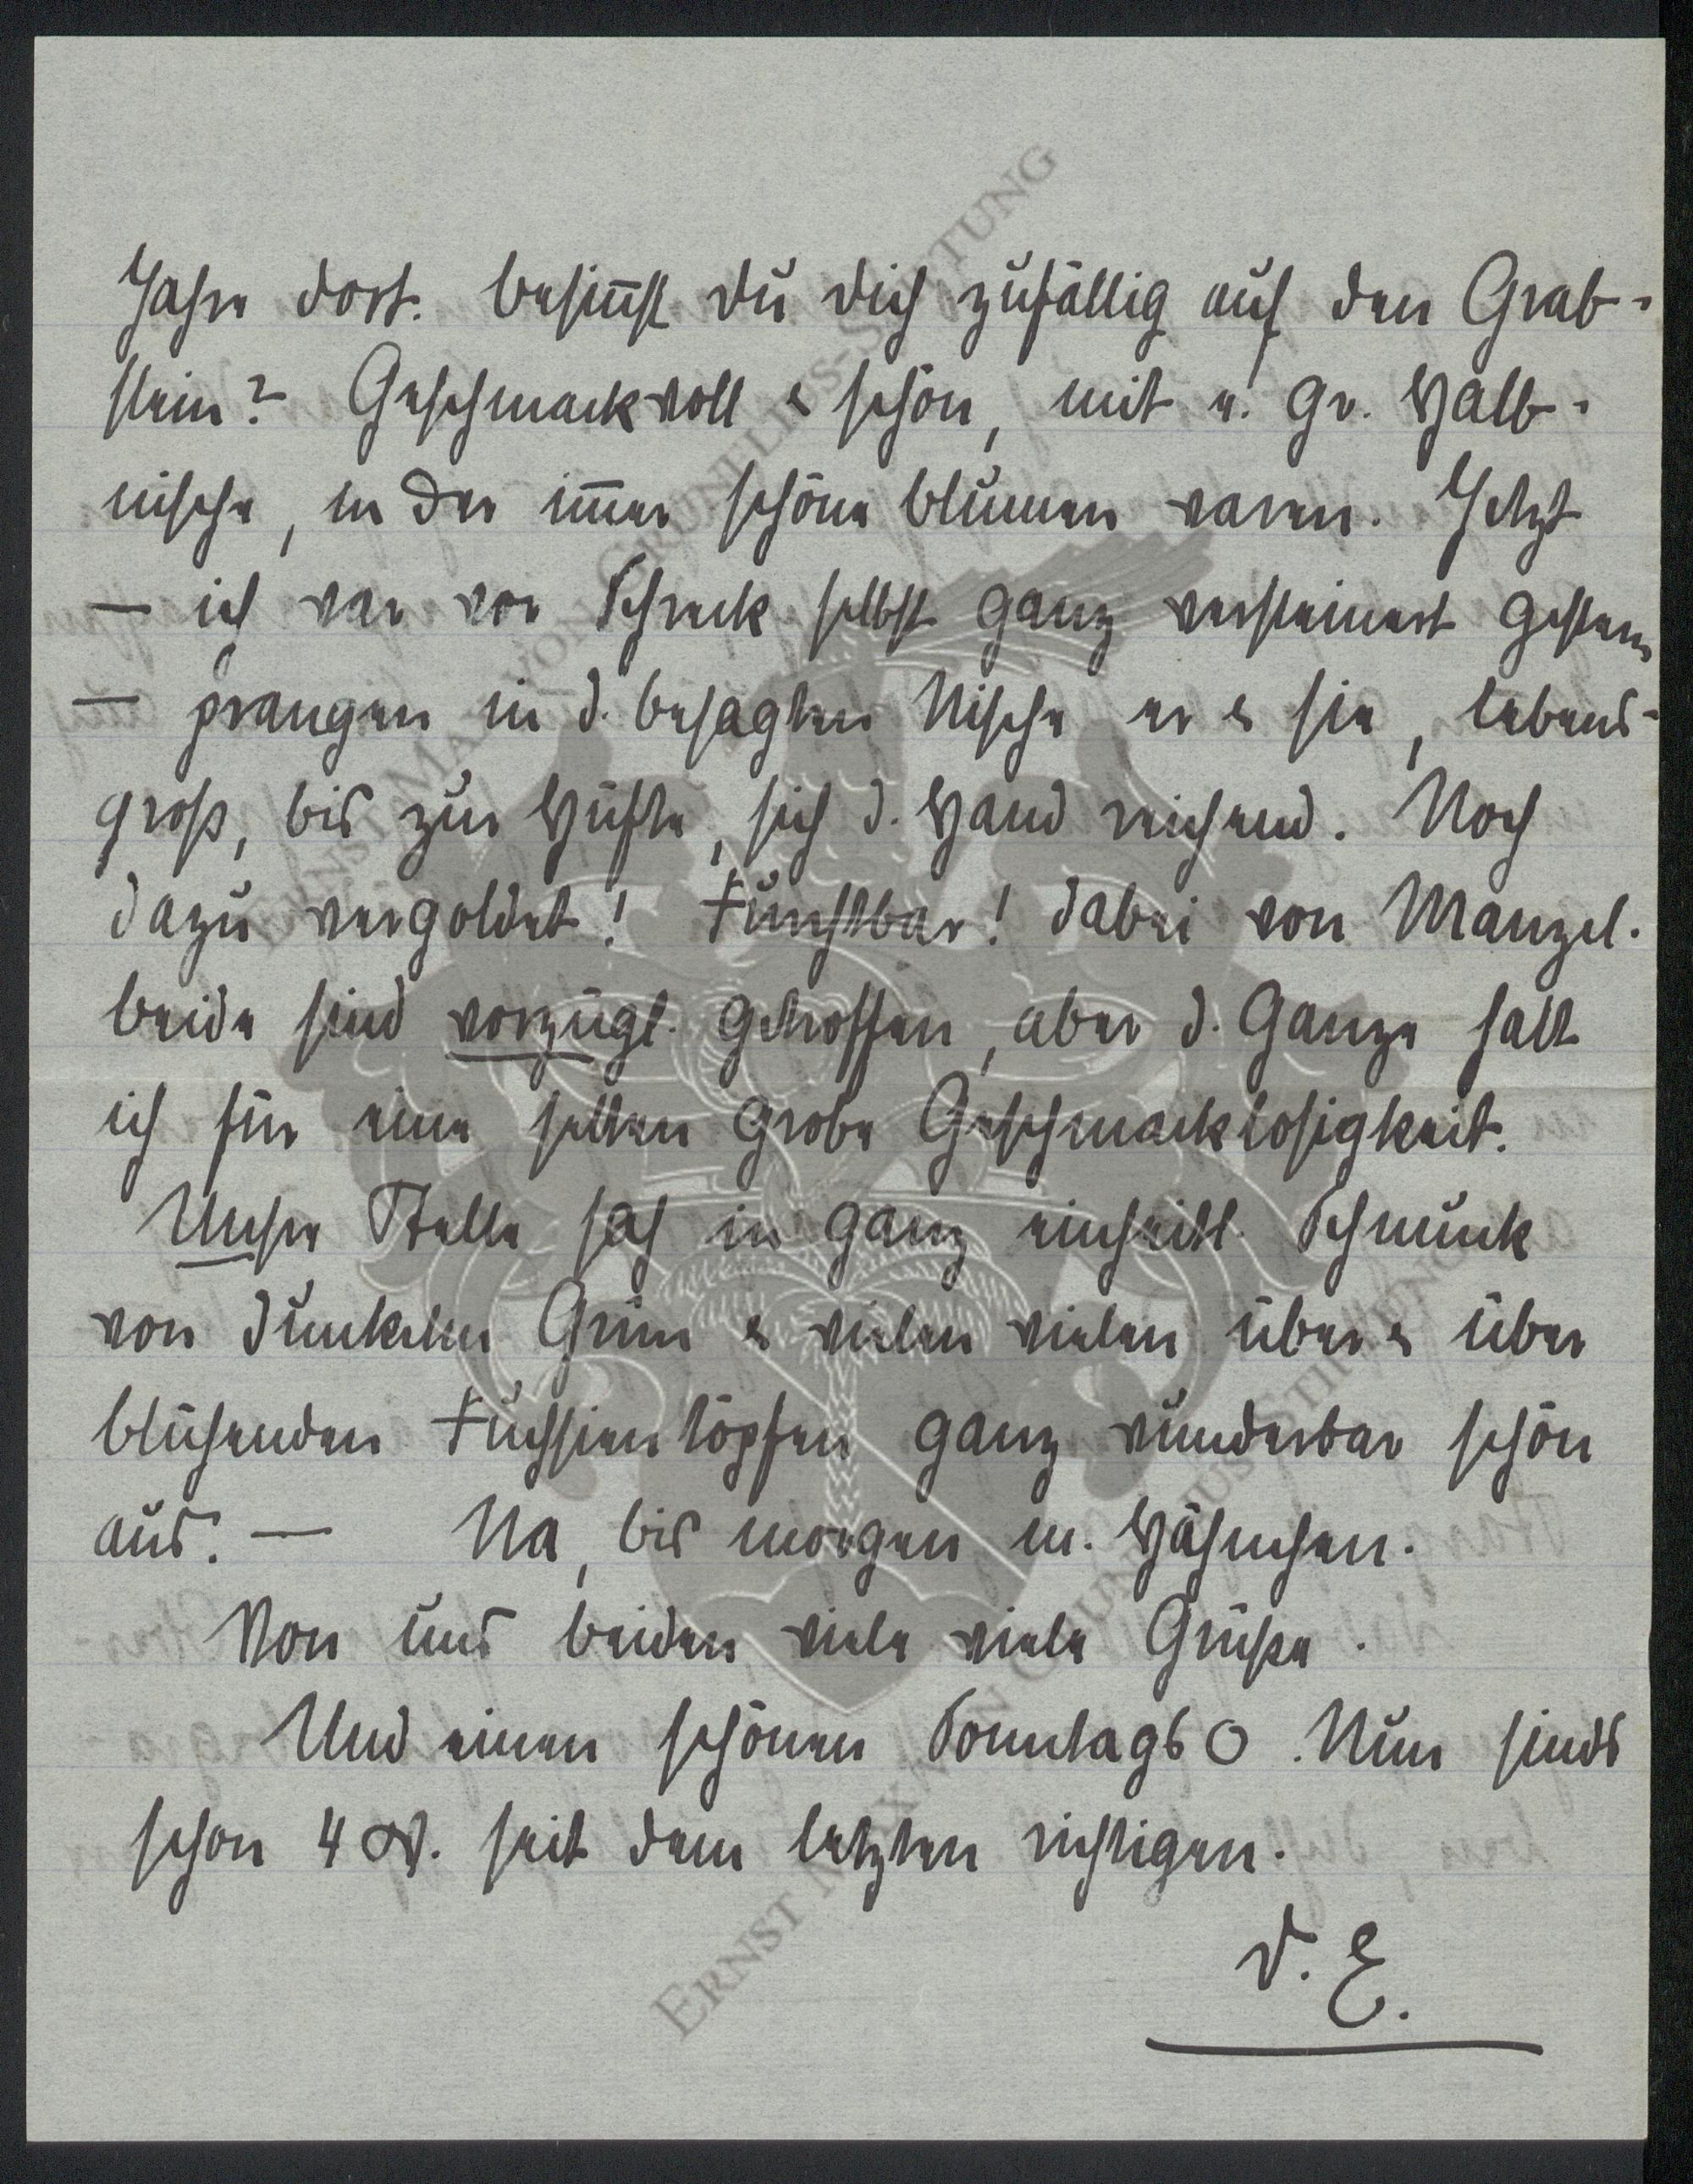 Jahre dort. Besin̄st Du Dich zufällig auf den Grab-
stein? Geschmackvoll & schön, mit e. gr. Halb-
nische, in der im̄er schöne Blumen waren. Jetzt
— ich war vor Schreck selbst ganz versteinert gestern
— prangen in d. besagten Nische er & sie, lebens-
groß, bis zur Hüfte, sich d. Hand reichend. Noch
dazu vergoldet! Furchtbar! Dabei von Manzel.
Beide sind vorzügl. getroffen, aber d. Ganze halt
ich für eine selten grobe Geschmacklosigkeit.
Unsre Stelle sah in ganz einheitl. Schmuck
von dunkelm Grün & vielen vielen über & über
blühenden Fuchsientöpfen ganz wunderbar schön
aus. — Na, bis morgen m. Hähnchen.
Von uns beiden viele viele Grüße.
Und einen schönen Sonntags O. Nun sinds
schon 4 W. seit dem letzten richtigen.
D. E.
ERNST MAX VON GRUNELIUS-STIFTUNG
ERNST MAX VON GRUNELIUS-STIFTUNG